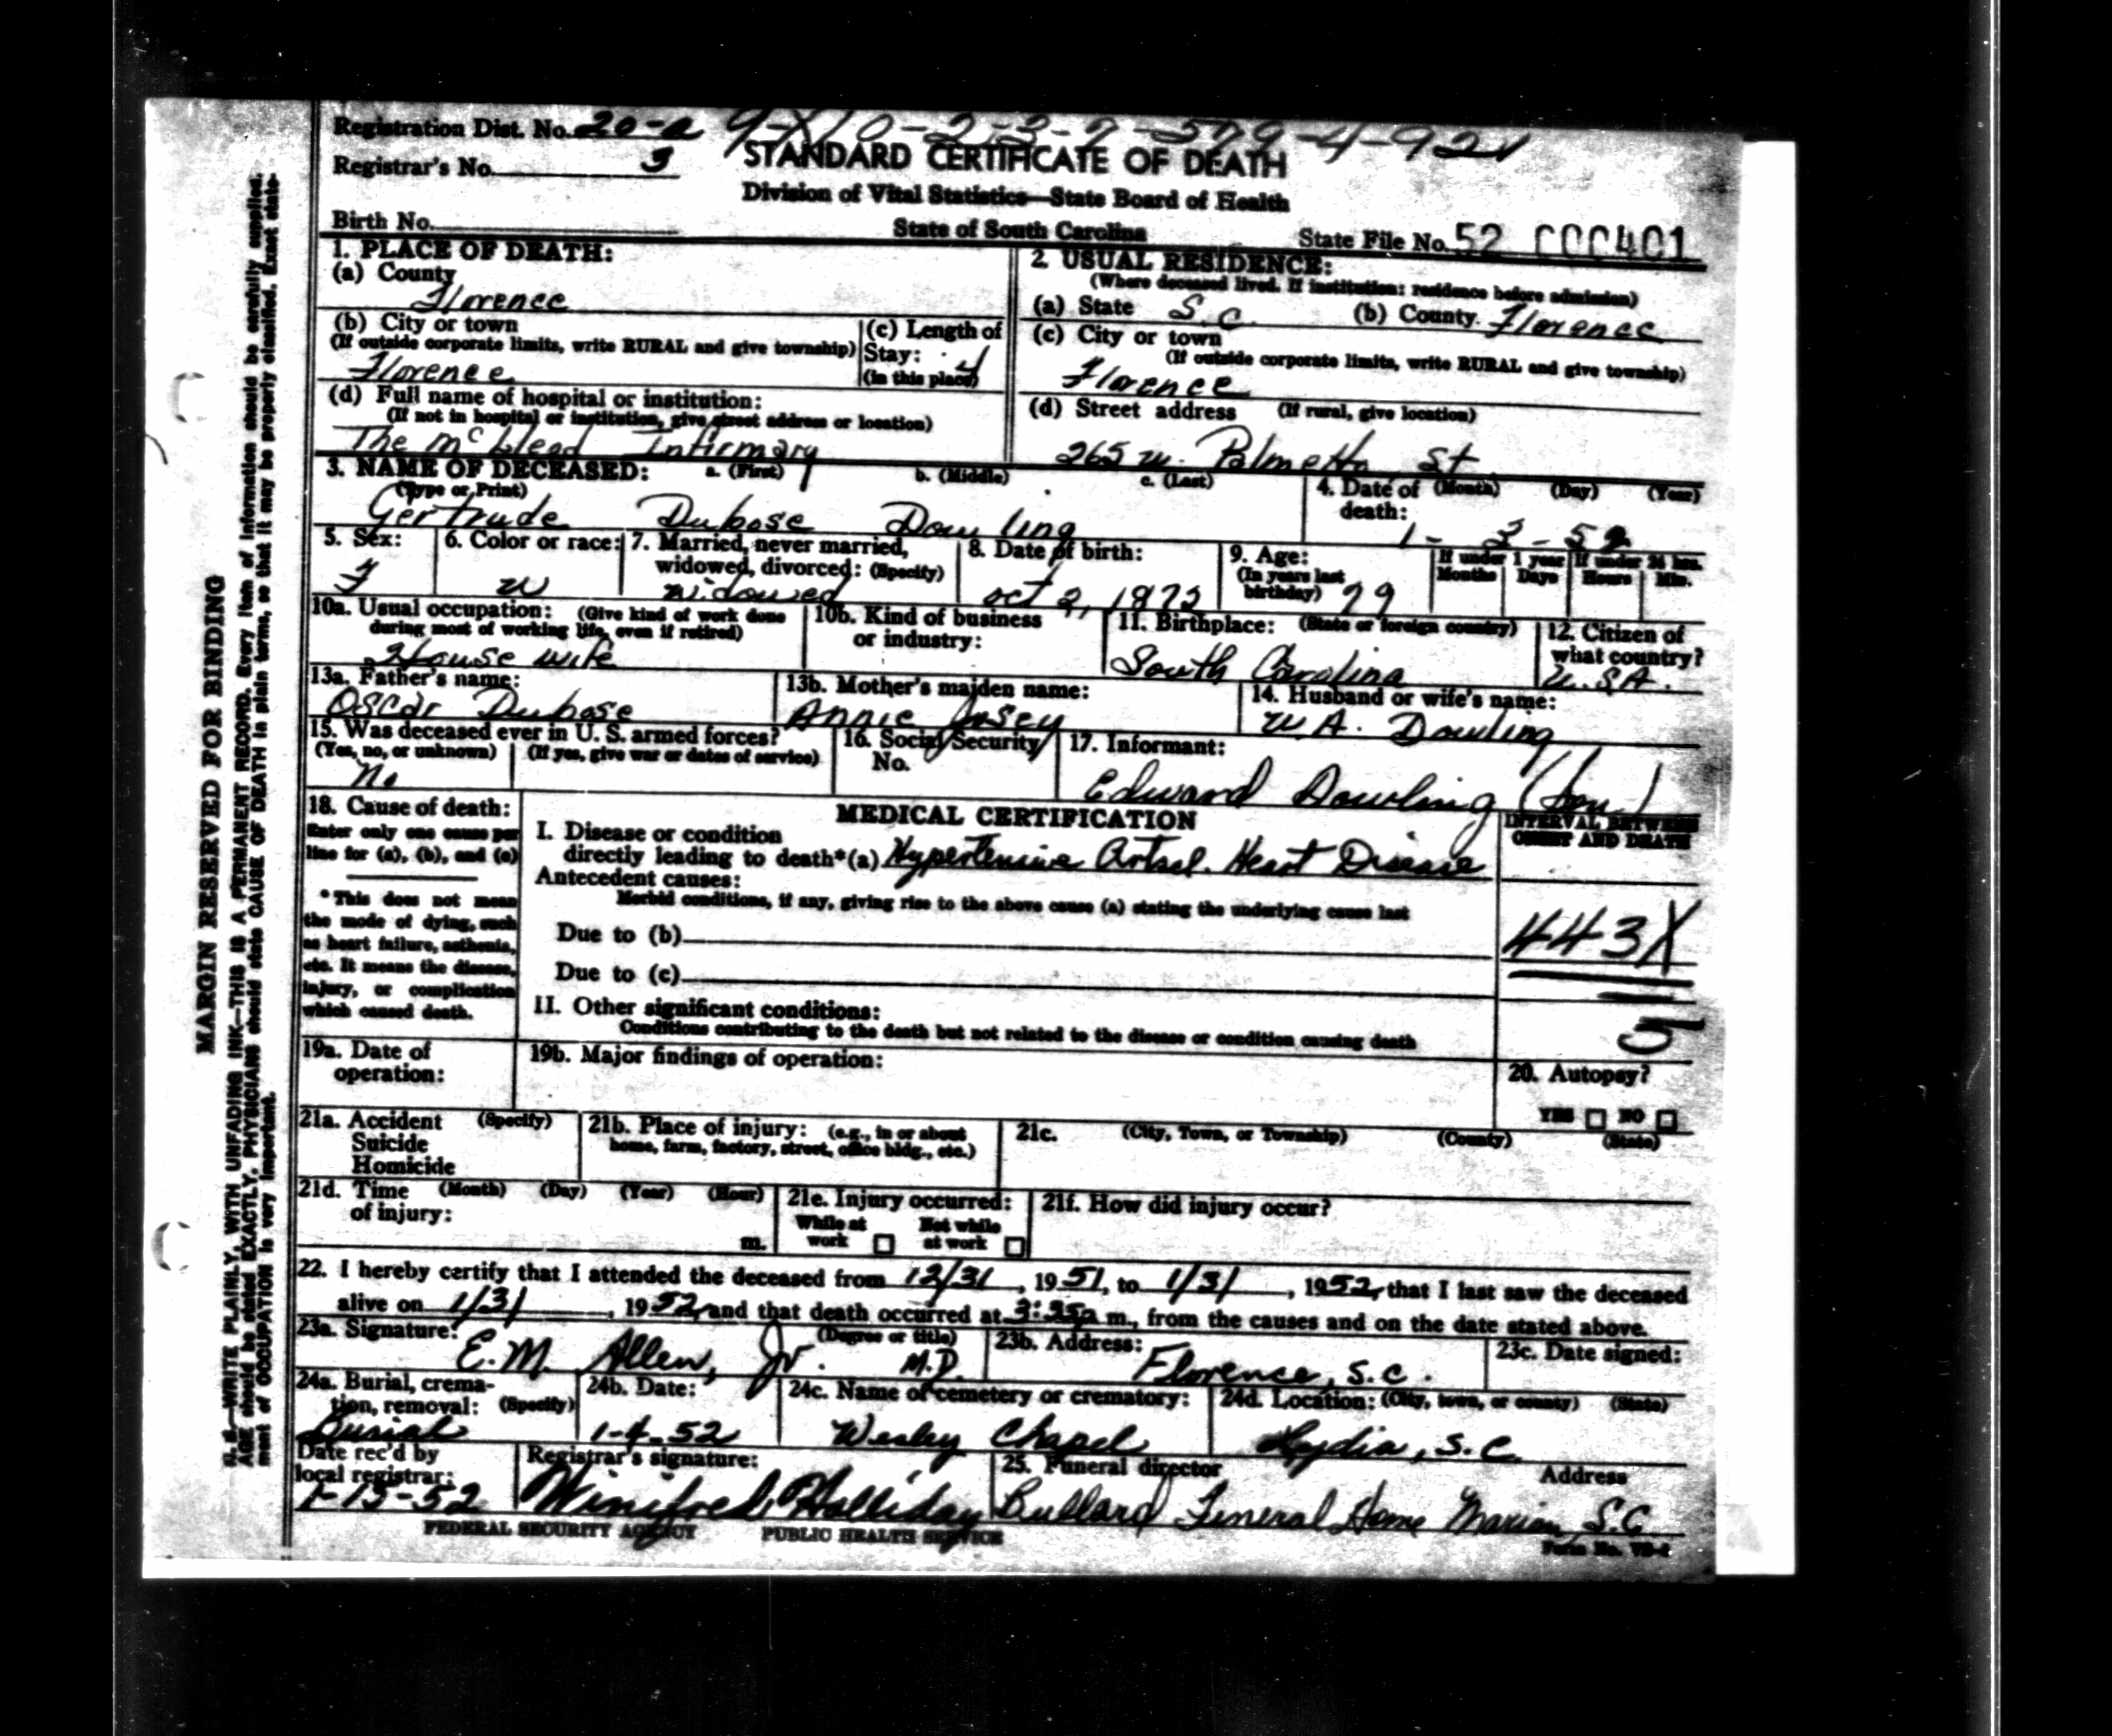 Registration Dist. No. 20-a 9-X10-2-3-7-579-4-921
Registrar's No. 3
STANDARD CERTIFICATE OF DEATH
Division of Vital Statistics—State Board of Health
Birth No.
State of South Carolina
State File No. 52 000401
1. PLACE OF DEATH:
(a) County
Florence
(b) City or town
(If outside corporate limits, write RURAL and give township)
Florence
(c) Length of
Stay:
(in this place)
(d) Full name of hospital or institution:
(If not in hospital or institution, give street address or location)
The McLeod Infirmary
2. USUAL RESIDENCE:
(Where deceased lived. If institution: residence before admission)
(a) State S.C. (b) County. Florence
(c) City or town
(If outside corporate limits, write RURAL and give township)
Florence
(d) Street address (If rural, give location)
265 W. Palmetto St
3. NAME OF DECEASED: a. (First) b. (Middle) c. (Last)
(Type or Print)
Gertrude Dubose Dowling
4. Date of (Month) (Day) (Year)
death:
1-3-52
5. Sex:
F
6. Color or race:
W
7. Married, never married,
widowed, divorced: (Specify)
Widowed
8. Date of birth:
Oct 2, 1872
9. Age:
(In years last
birthday) 79
If under 1 year
Months Days
If under 24 hrs.
Hours Min.
10a. Usual occupation: (Give kind of work done
during most of working life, even if retired)
House wife
10b. Kind of business
or industry:
11. Birthplace: (State or foreign country)
South Carolina
12. Citizen of
what country?
U.S.A.
13a. Father's name:
Oscar Dubose
13b. Mother's maiden name:
Annie Josey
14. Husband or wife's name:
W.A. Dowling
15. Was deceased ever in U. S. armed forces?
(Yes, no, or unknown) (If yes, give war or dates of service)
No
16. Social Security
No.
17. Informant:
Edward Dowling (Son)
18. Cause of death:
Enter only one cause per
line for (a), (b), and (c)
*This does not mean
the mode of dying, such
as heart failure, asthenia,
etc. It means the disease,
injury, or complication
which caused death.
MEDICAL CERTIFICATION
I. Disease or condition
directly leading to death*(a) Hypertensive Artscl. Heart Disease
Antecedent causes:
Morbid conditions, if any, giving rise to the above cause (a) stating the underlying cause last
Due to (b)
Due to (c)
II. Other significant conditions:
Conditions contributing to the death but not related to the disease or condition causing death
INTERVAL BETWEEN
ONSET AND DEATH
443X
19a. Date of
operation:
19b. Major findings of operation:
20. Autopsy?
YES NO
21a. Accident (Specify)
Suicide
Homicide
21b. Place of injury: (e.g., in or about
home, farm, factory, street, office bldg., etc.)
21c. (City, Town, or Township) (County) (State)
21d. Time (Month) (Day) (Year) (Hour)
of injury:
m.
21e. Injury occurred:
While at
work
Not while
at work
21f. How did injury occur?
22. I hereby certify that I attended the deceased from 12/31, 1951, to 1/3/, 1952, that I last saw the deceased
alive on 1/3/, 1952, and that death occurred at 3:35a m., from the causes and on the date stated above.
23a. Signature: (Degree or title)
E.M. Allen, Jr. M.D.
23b. Address:
Florence, S.C.
23c. Date signed:
24a. Burial, crema-
tion, removal: (Specify)
Burial
24b. Date:
1-4-52
24c. Name of cemetery or crematory:
Wesley Chapel
24d. Location: (City, town, or county) (State)
Lydia, S.C.
Date rec'd by
local registrar:
1-15-52
Registrar's signature:
Winifred Halliday
25. Funeral director Address
Bullard Funeral Home Marion, S.C
FEDERAL SECURITY AGENCY PUBLIC HEALTH SERVICE
Form No. VS-2
MARGIN RESERVED FOR BINDING
N. B.—WRITE PLAINLY, WITH UNFADING INK—THIS IS A PERMANENT RECORD. Every item of information should be carefully supplied.
AGE should be stated EXACTLY. PHYSICIANS should state CAUSE OF DEATH in plain terms, so that it may be properly classified. Exact state-
ment of OCCUPATION is very important.